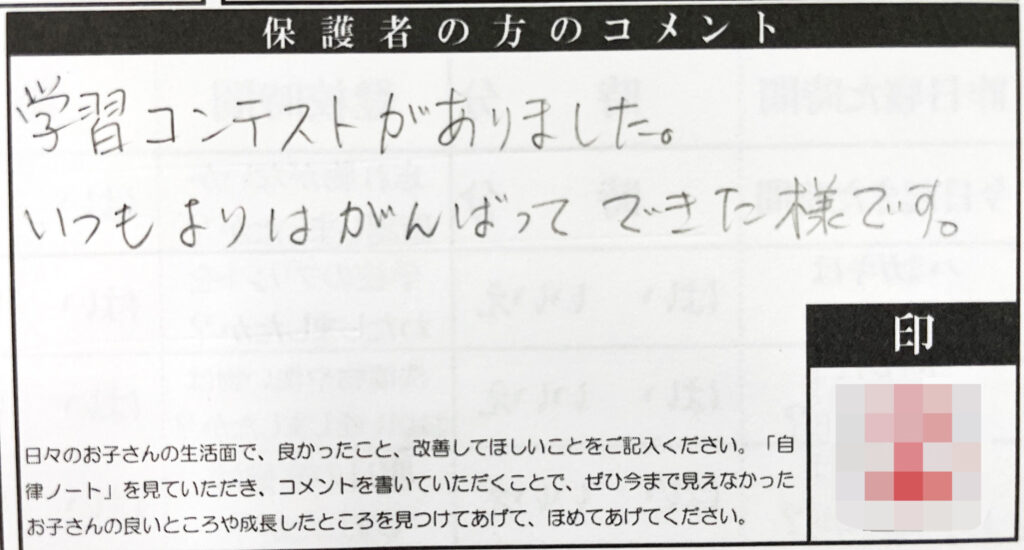 保護者の方のコメント
学習コンテストがありました。
いつもよりはがんばってできた様です。
印
日々のお子さんの生活面で、良かったこと、改善してほしいことをご記入ください。「自
律ノート」を見ていただき、コメントを書いていただくことで、ぜひ今まで見えなかった
お子さんの良いところや成長したところを見つけてあげて、ほめてあげてください。